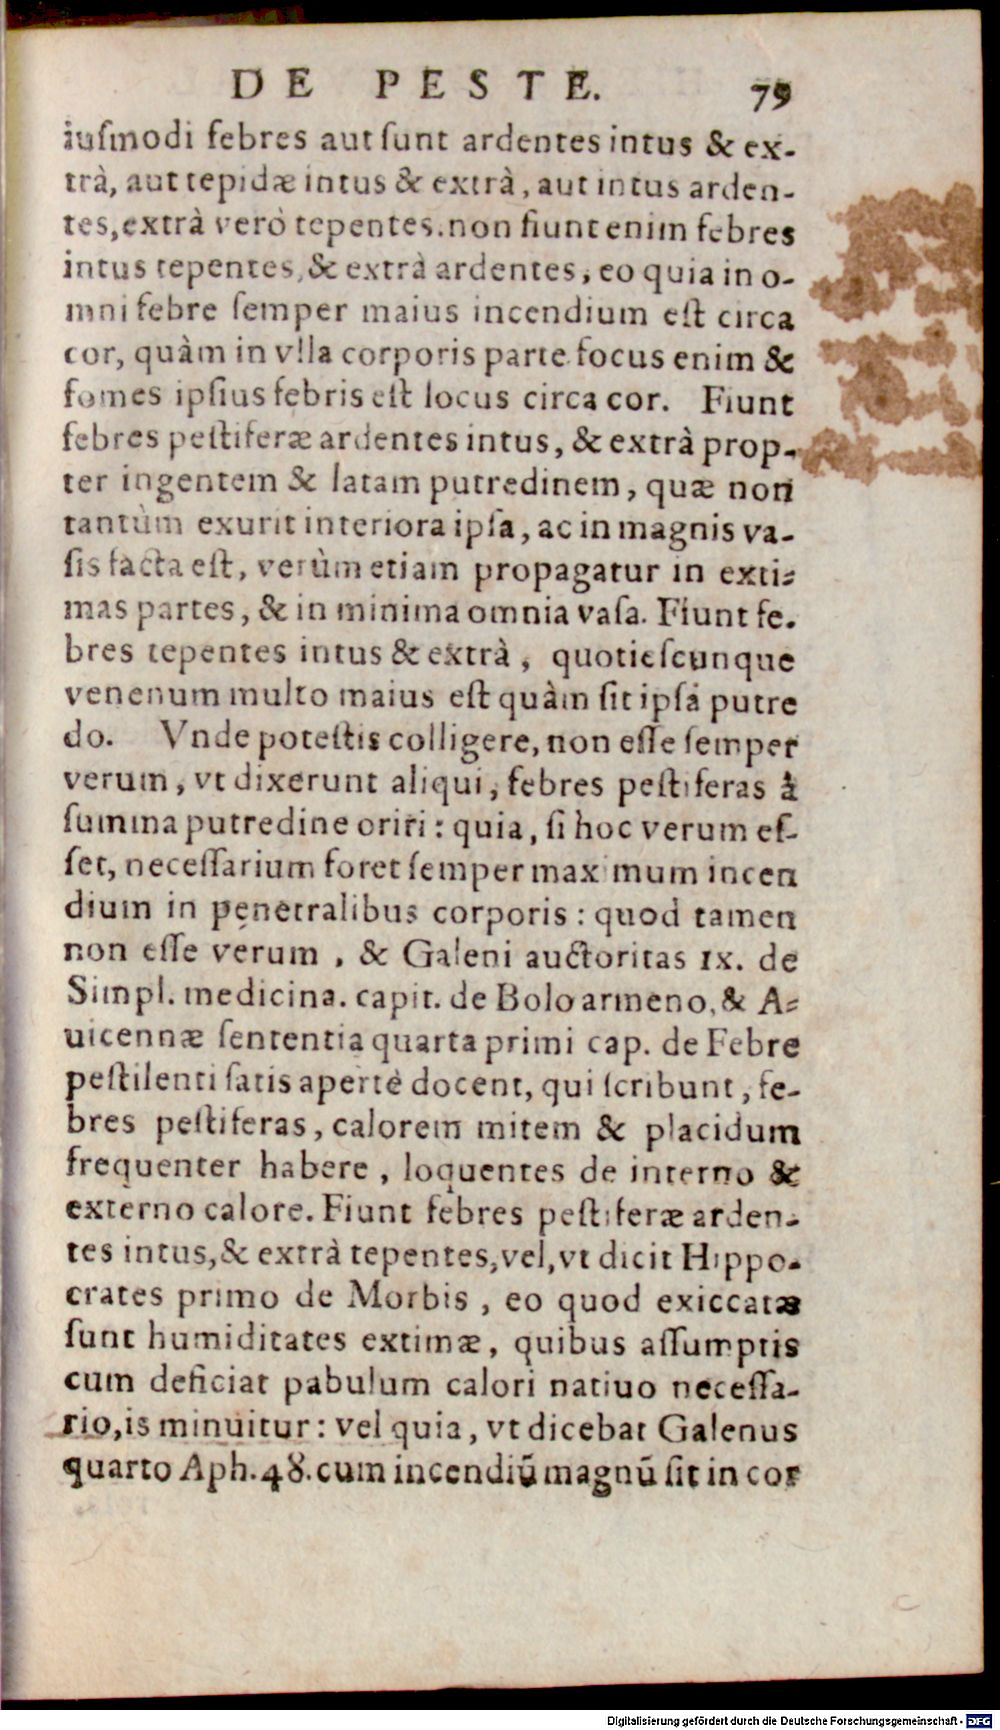 DE PESTE. 79
iusmodi febres aut sunt ardentes intus & ex-
trà, aut tepidæ intus & extrà, aut intus arden-
tes, extrà verò tepentes. non fiunt enim febres
intus tepentes, & extrà ardentes, eo quia in o-
mni febre semper maius incendium est circa
cor, quàm in vlla corporis parte focus enim &
fomes ipsius febris est locus circa cor. Fiunt
febres pestiferæ ardentes intus, & extrà prop-
ter ingentem & latam putredinem, quæ non
tantùm exurit interiora ipsa, ac in magnis va-
sis facta est, verùm etiam propagatur in exti-
mas partes, & in minima omnia vasa. Fiunt fe-
bres tepentes intus & extrà, quotiescunque
venenum multo maius est quàm sit ipsa putre
do. Vnde potestis colligere, non esse semper
verum, vt dixerunt aliqui, febres pestiferas à
summa putredine oriri: quia, si hoc verum es-
set, necessarium foret semper maximum incen
dium in penetralibus corporis: quod tamen
non esse verum, & Galeni auctoritas IX. de
Simpl. medicina. capit. de Bolo armeno, & A-
uicennæ sententia quarta primi cap. de Febre
pestilenti satis apertè docent, qui scribunt, fe-
bres pestiferas, calorem mitem & placidum
frequenter habere, loquentes de interno &
externo calore. Fiunt febres pestiferæ arden-
tes intus, & extrà tepentes, vel, vt dicit Hippo-
crates primo de Morbis, eo quod exiccatæ
sunt humiditates extimæ, quibus assumptis
cum deficiat pabulum calori natiuo necessa-
rio, is minuitur: vel quia, vt dicebat Galenus
quarto Aph. 48. cum incendiũ magnũ sit in cor
Digitalisierung gefördert durch die Deutsche Forschungsgemeinschaft - DFG